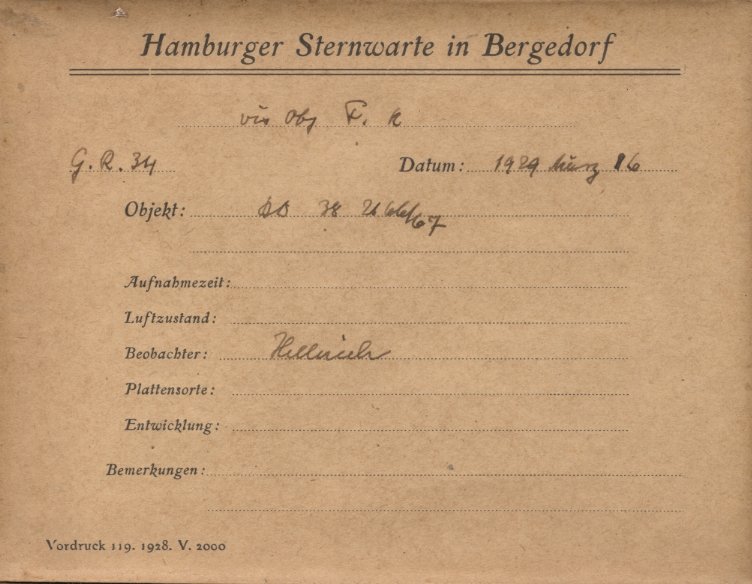 Hamburger Sternwarte in Bergedorf
vis Obj F. R
G. R. 34 Datum: 1929 März 16
Objekt: BD 38
Aufnahmezeit:
Luftzustand:
Beobachter: Hellerich
Plattensorte:
Entwicklung:
Bemerkungen:
Vordruck 119. 1928. V. 2000